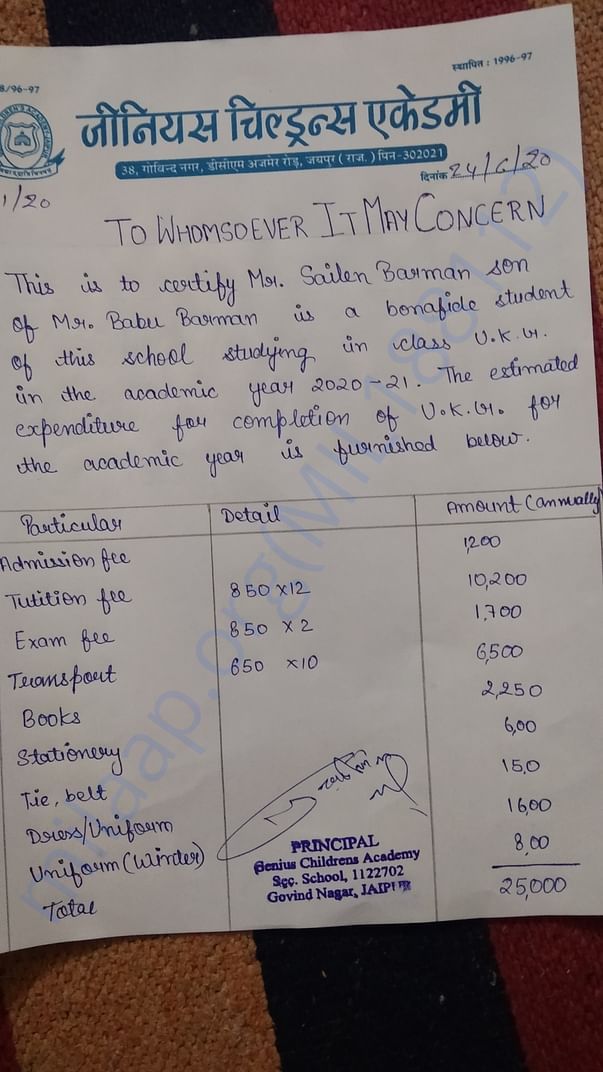 8/96-97
स्थापित : 1996-97
जीनियस चिल्ड्रन्स एकेडमी
38, गोविन्द नगर, डीसीएम अजमेर रोड़, जयपुर (राज.) पिन-302021
1/20
दिनांक 24/6/20
TO WHOMSOEVER IT MAY CONCERN
This is to certify Mr. Sailen Barman son
of Mr. Babu Barman is a bonafide student
of this school studying in class U.K.G.
in the academic year 2020-21. The estimated
expenditure for completion of U.K.G. for
the academic year is furnished below.
Particular Detail Amount (annually)
Admission fee 1,200
Tutition fee 850 x12 10,200
Exam fee 850 x 2 1,700
Transport 650 x10 6,500
Books 2,250
Stationery 6,00
Tie, belt 15,0
Dress/Uniform 16,00
Uniform (Winter) 8,00
Total 25,000
PRINCIPAL
Genius Childrens Academy
Sec. School, 1122702
Govind Nagar, JAIPUR
milaap.org(MIL188112)